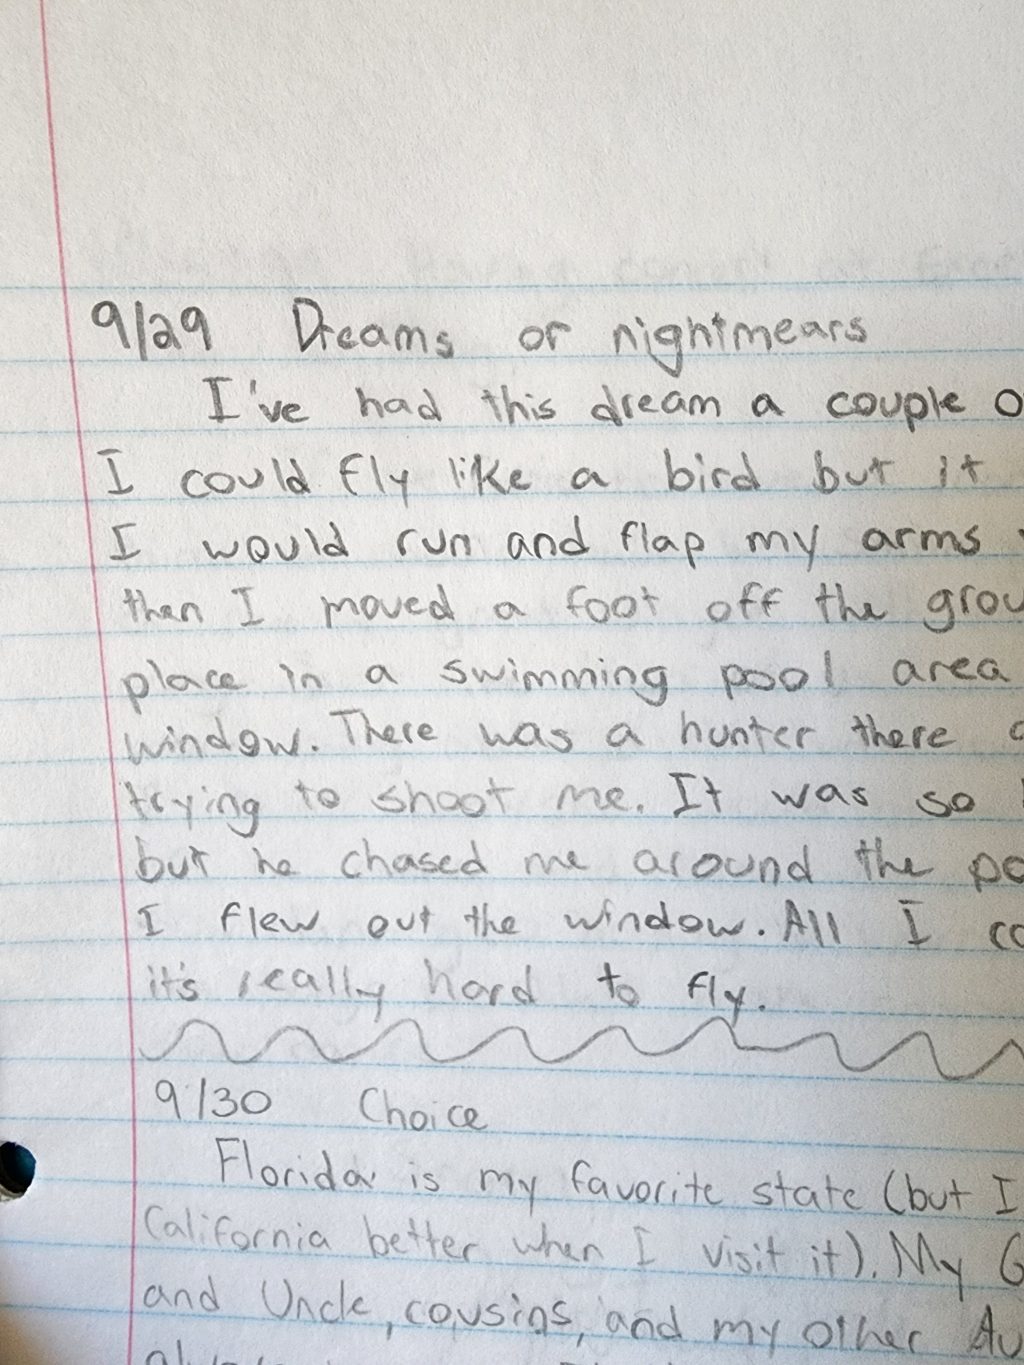 9/29 Dreams or nightmears
I've had this dream a couple
I could fly like a bird but it
I would run and flap my arms
then I moved a foot off the
place in a swimming pool area
window. There was a hunter there
trying to shoot me. It was so
but he chased me around the
I flew out the window. All I
it's really hard to fly.
9/30 Choice
Florida is my favorite state (but I
California better when I visit it). My
and Uncle, cousins, and my other